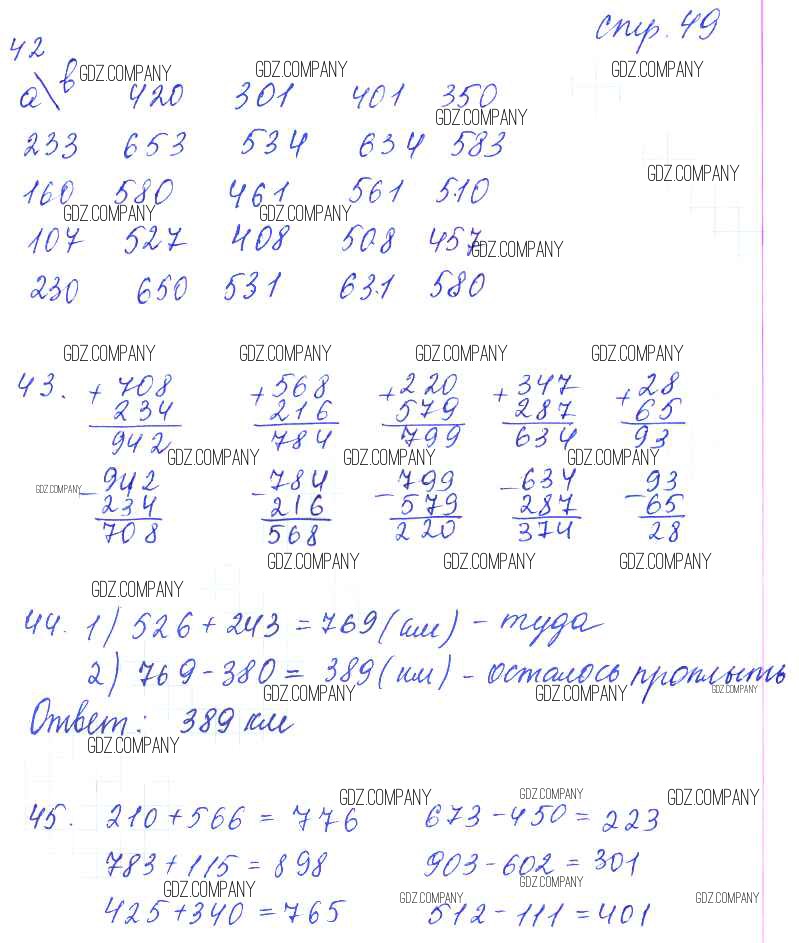 стр. 49
42
GDZ.COMPANY GDZ.COMPANY GDZ.COMPANY
а\в 420 301 401 350
GDZ.COMPANY
233 653 534 634 583
GDZ.COMPANY
160 580 461 561 510
GDZ.COMPANY GDZ.COMPANY
107 527 408 508 457
GDZ.COMPANY
230 650 531 631 580
GDZ.COMPANY GDZ.COMPANY GDZ.COMPANY GDZ.COMPANY
43. + 708 + 568 + 220 + 347 + 28
234 216 579 287 65
942 784 799 634 93
GDZ.COMPANY GDZ.COMPANY GDZ.COMPANY
GDZ.COMPANY - 942 - 784 - 799 - 634 - 93
234 216 579 287 65
708 568 220 374 28
GDZ.COMPANY GDZ.COMPANY GDZ.COMPANY
GDZ.COMPANY
44. 1) 526 + 243 = 769 (км) - туда
2) 769 - 380 = 389 (км) - осталось проплыть
GDZ.COMPANY GDZ.COMPANY GDZ.COMPANY
Ответ: 389 км
GDZ.COMPANY
GDZ.COMPANY GDZ.COMPANY GDZ.COMPANY
45. 210 + 566 = 776 673 - 450 = 223
783 + 115 = 898 903 - 602 = 301
GDZ.COMPANY GDZ.COMPANY
GDZ.COMPANY GDZ.COMPANY
425 + 340 = 765 512 - 111 = 401